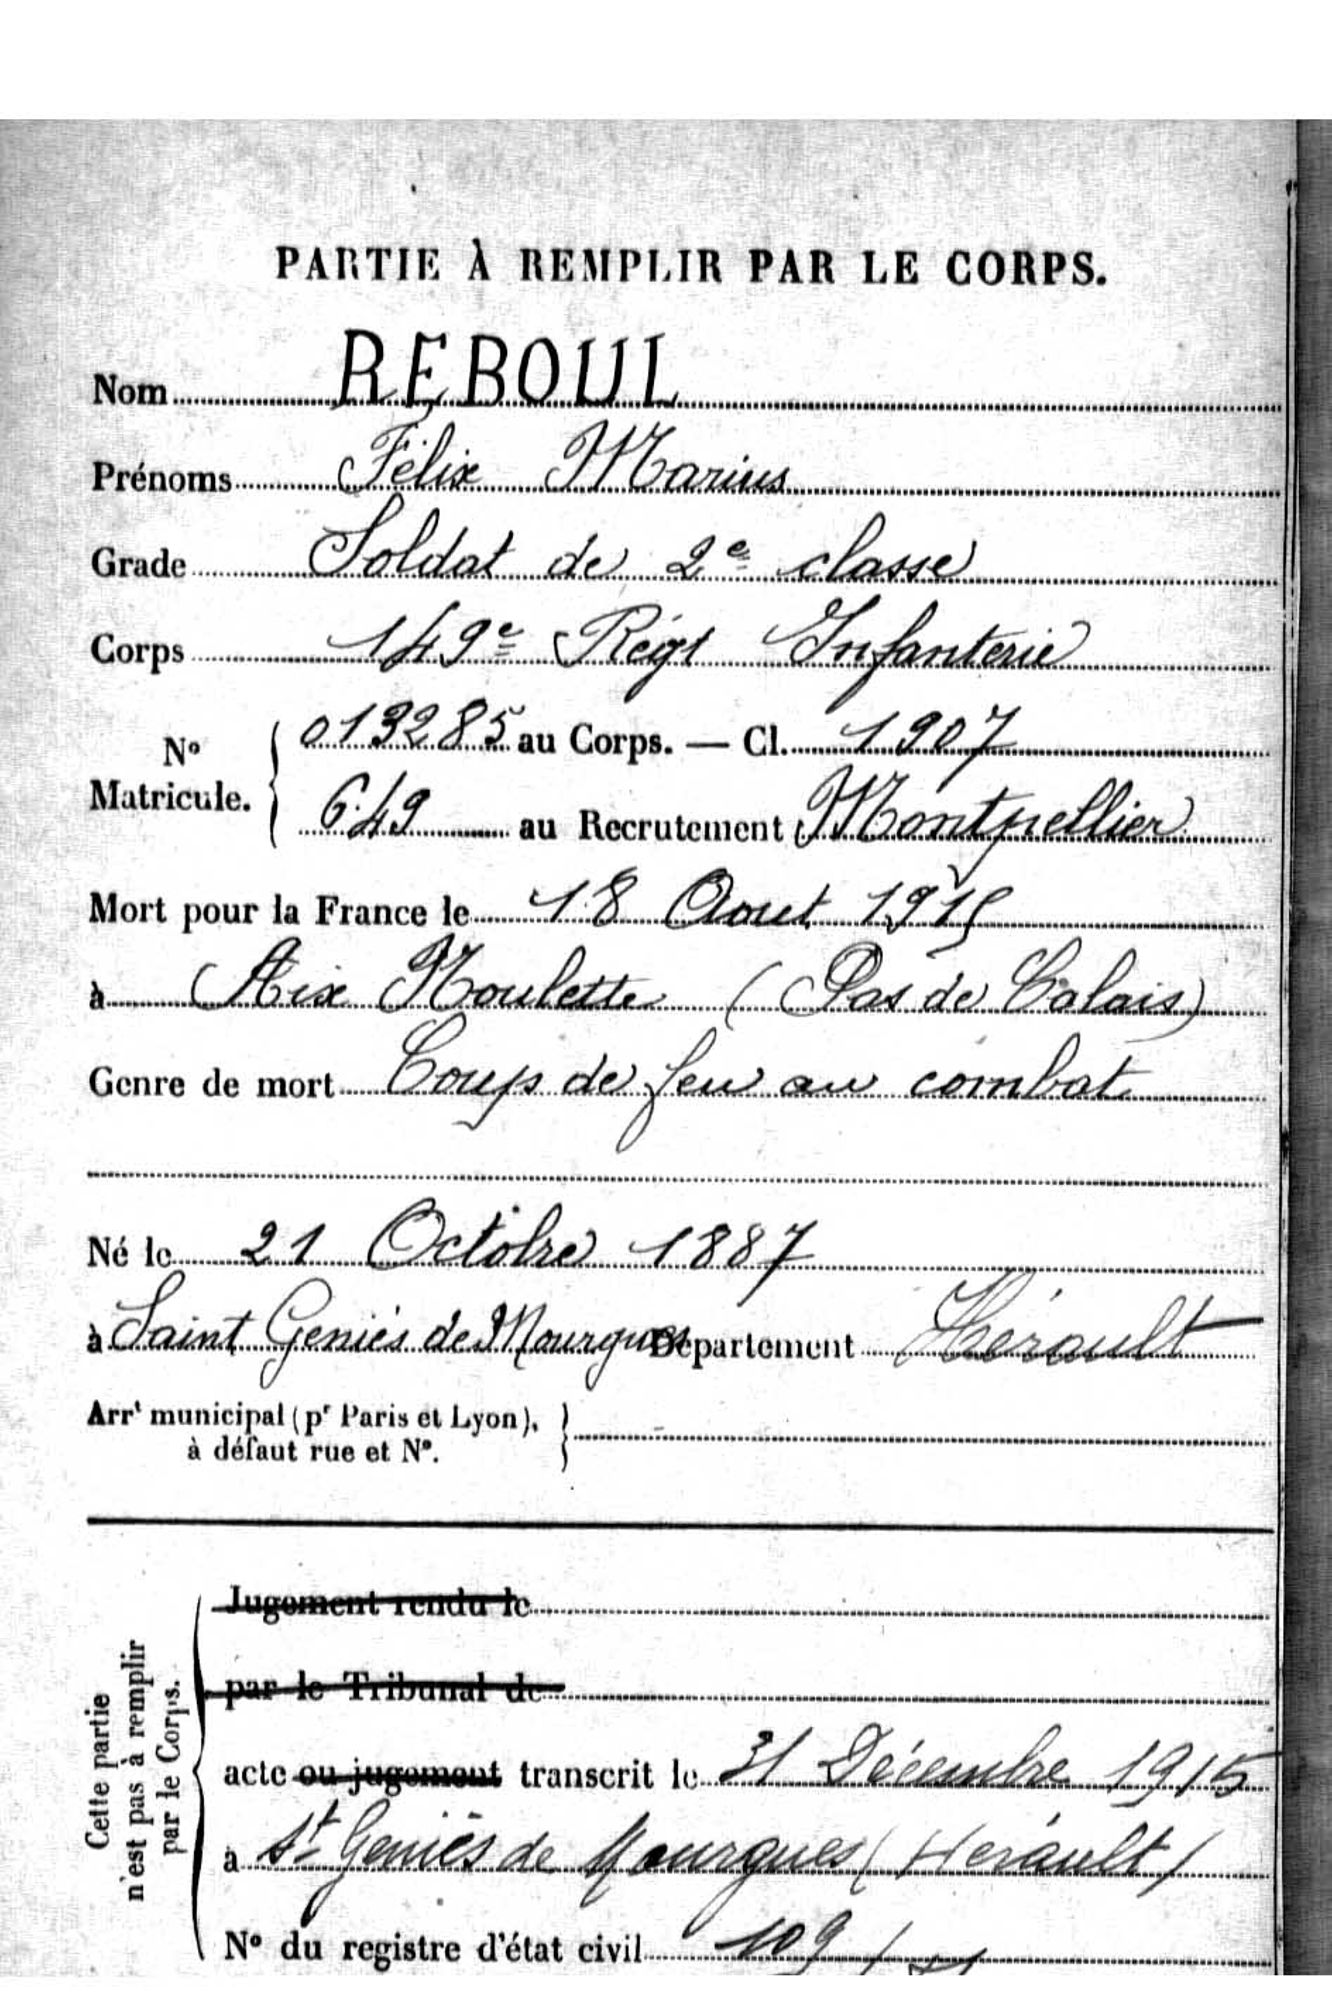 PARTIE À REMPLIR PAR LE CORPS.
Nom REBOUL
Prénoms Félix Marius
Grade Soldat de 2e classe
Corps 149e Régt Infanterie
N° Matricule. { 013285 au Corps. — Cl. 1907
649 au Recrutement Montpellier
Mort pour la France le 18 Aout 1915
à Aix Noulette (Pas de Calais)
Genre de mort Coup de feu au combat
Né le 21 Octobre 1887
à Saint Geniés de Mourgues Département Hérault
Arrt municipal (pr Paris et Lyon),
à défaut rue et N°.
Jugement rendu le
par le Tribunal de
acte ou jugement transcrit le 31 Décembre 1915
à St Geniès de Mourgues (Hérault)
N° du registre d'état civil 109
Cette partie
n'est pas à remplir
par le Corps.